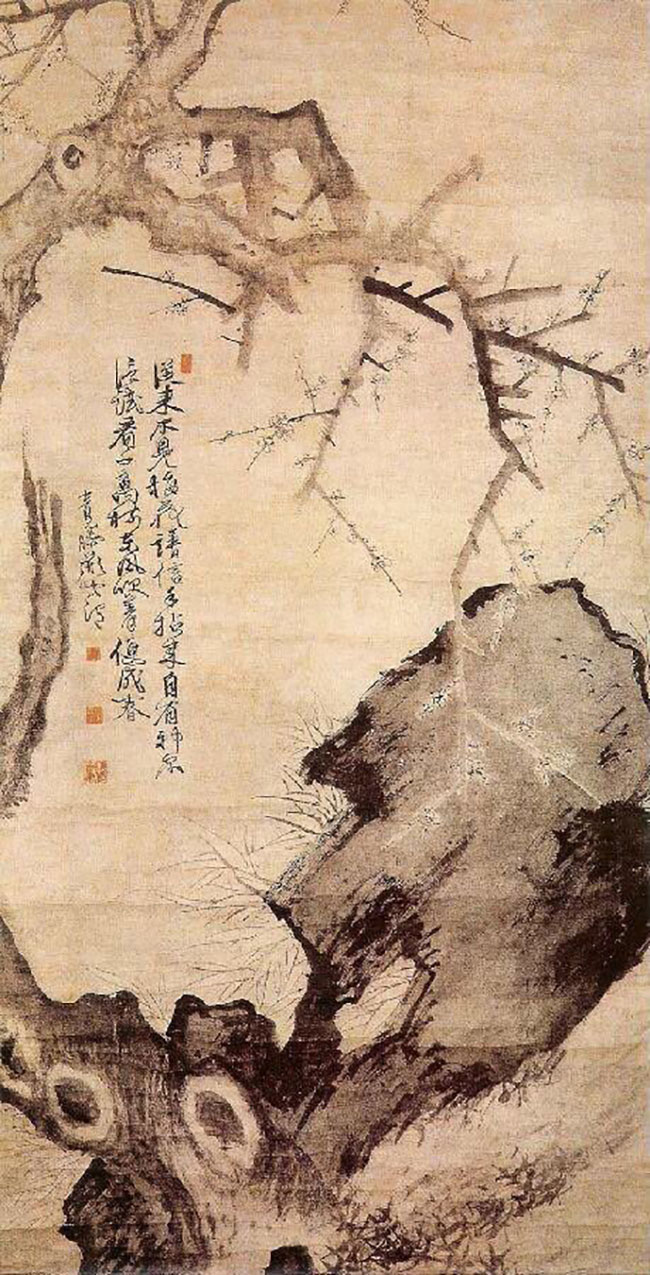 從来不見梅花譜信手拈来自有神不
信試看千萬樹東風吹着便成春
青藤